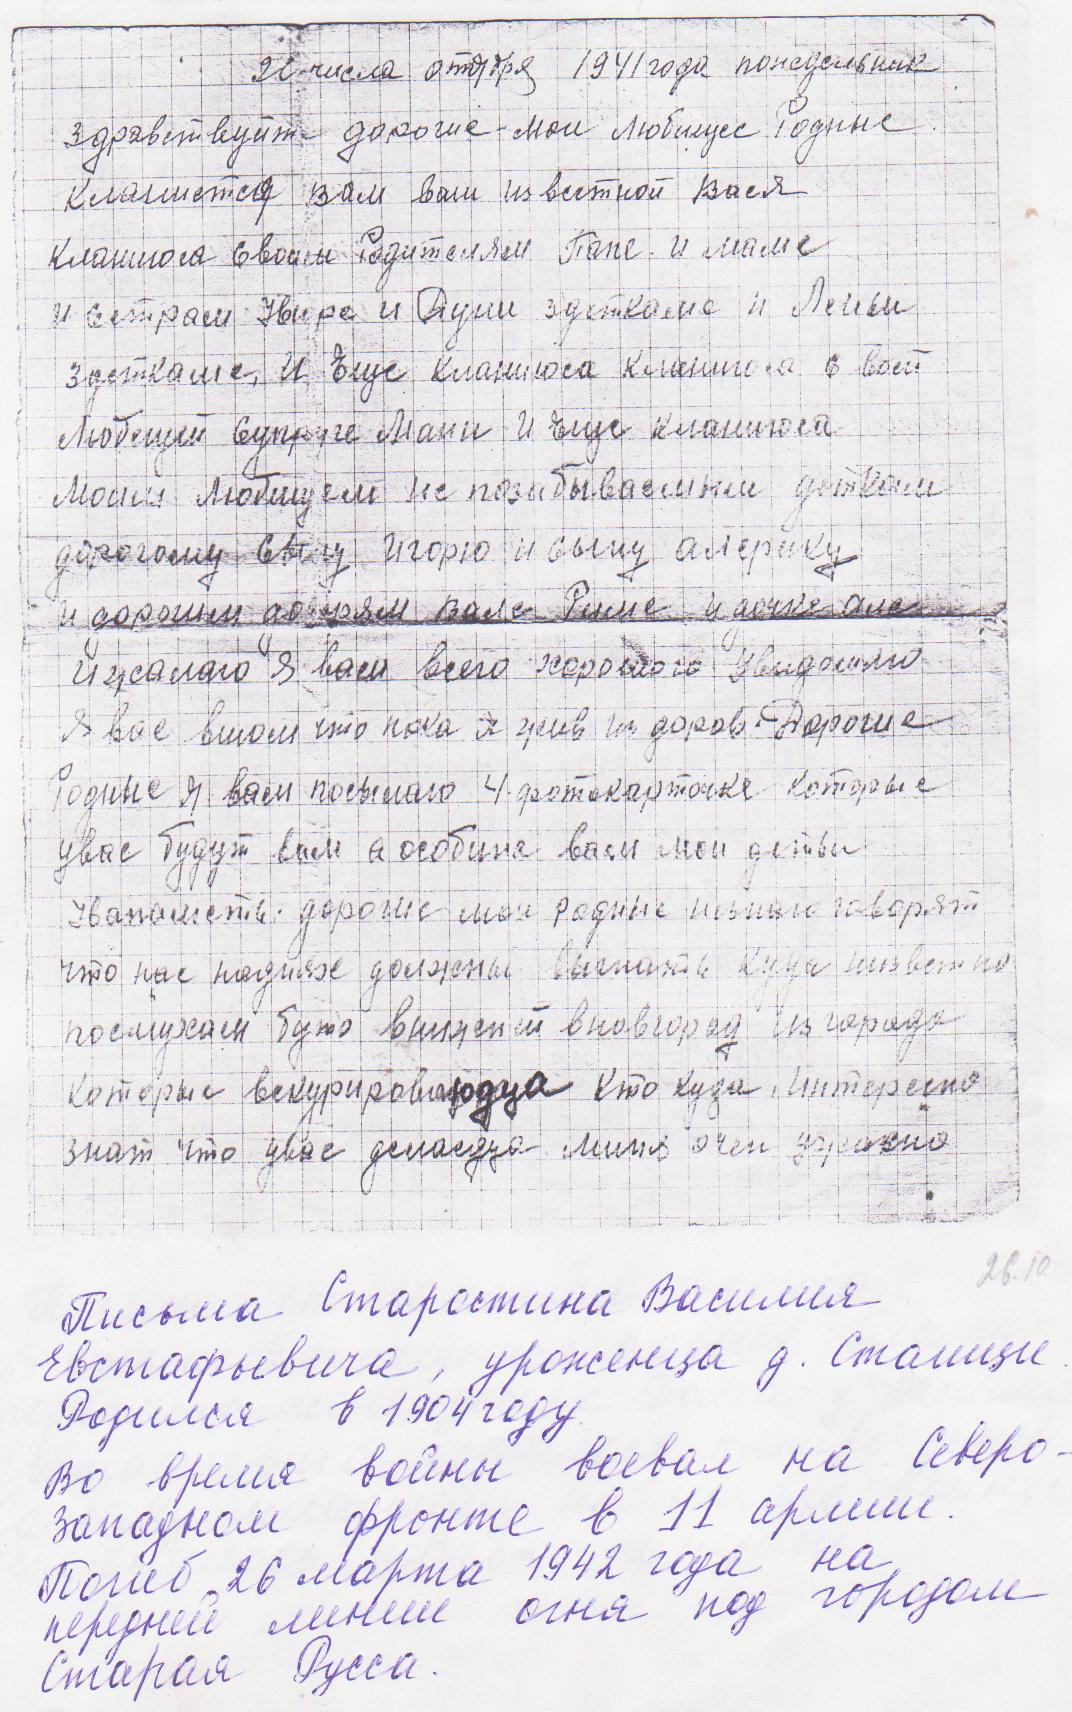 числа 1941 года понедельник
Здравствуйте дорогие мои Любищее Родные
Кланиется вам ваш известной Вася
Кланиюса своим Родителям Папе и маме
и сестрам и Дуни здеткаме и Лены
здеткаме, И Еще кланиюса кланиюса
Любищей супруге Мани И Еще кланиюса
Моим Любищем не позабываемым деткам
дорогому сыну Игорю и сыну
и дорогим Вале Риме и дочке але
И желаю я вам всего хорошого Уведомляю
Я вас втом что пока я жив издоров. Дорогие
Родные я вам посылаю 4 фотокарточке которые
увас будут вам а особине вам мои детьи
дорогие мои родные говорят
что нас надиях должны выслать куда
послухам буто внижней вновгород из города
которые кто куда. Интересно
знат что увас делаедца очен
26.10
Письма Старостина Василия
Евстафьевича, уроженца д. Станицы.
Родился в 1904 году.
Во время войны воевал на Северо-
Западном фронте в 11 армии.
Погиб 26 марта 1942 года на
передней линии огня под городом
Старая Русса.